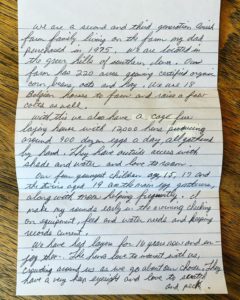 We are a second and third generation Amish
farm family living on the farm my dad
purchased in 1975. We are located in
the green hills of southern Iowa. Our
farm has 220 acres growing certified organic
corn, beans, oats and hay. We use 18
Belgian horses to farm and raise a few
colts as well.
With this we also have a cage free
laying house with 12000 hens producing
around 900 dozen eggs a day all gathered
by hand. They have outside access with
shade and water and love to roam.
Our four youngest children age 15, 17 and
the twins aged 19 are the main egg gatherers,
along with Mom helping frequently. I
make my rounds early in the evening checking
on equipment, feed and water needs and keeping
records current.
We have had layers for 10 years now and en-
joy it. The hens love to interact with us,
crowding around us as we go about our chores. They
have a very keen eyesight and love to scratch
and peck.